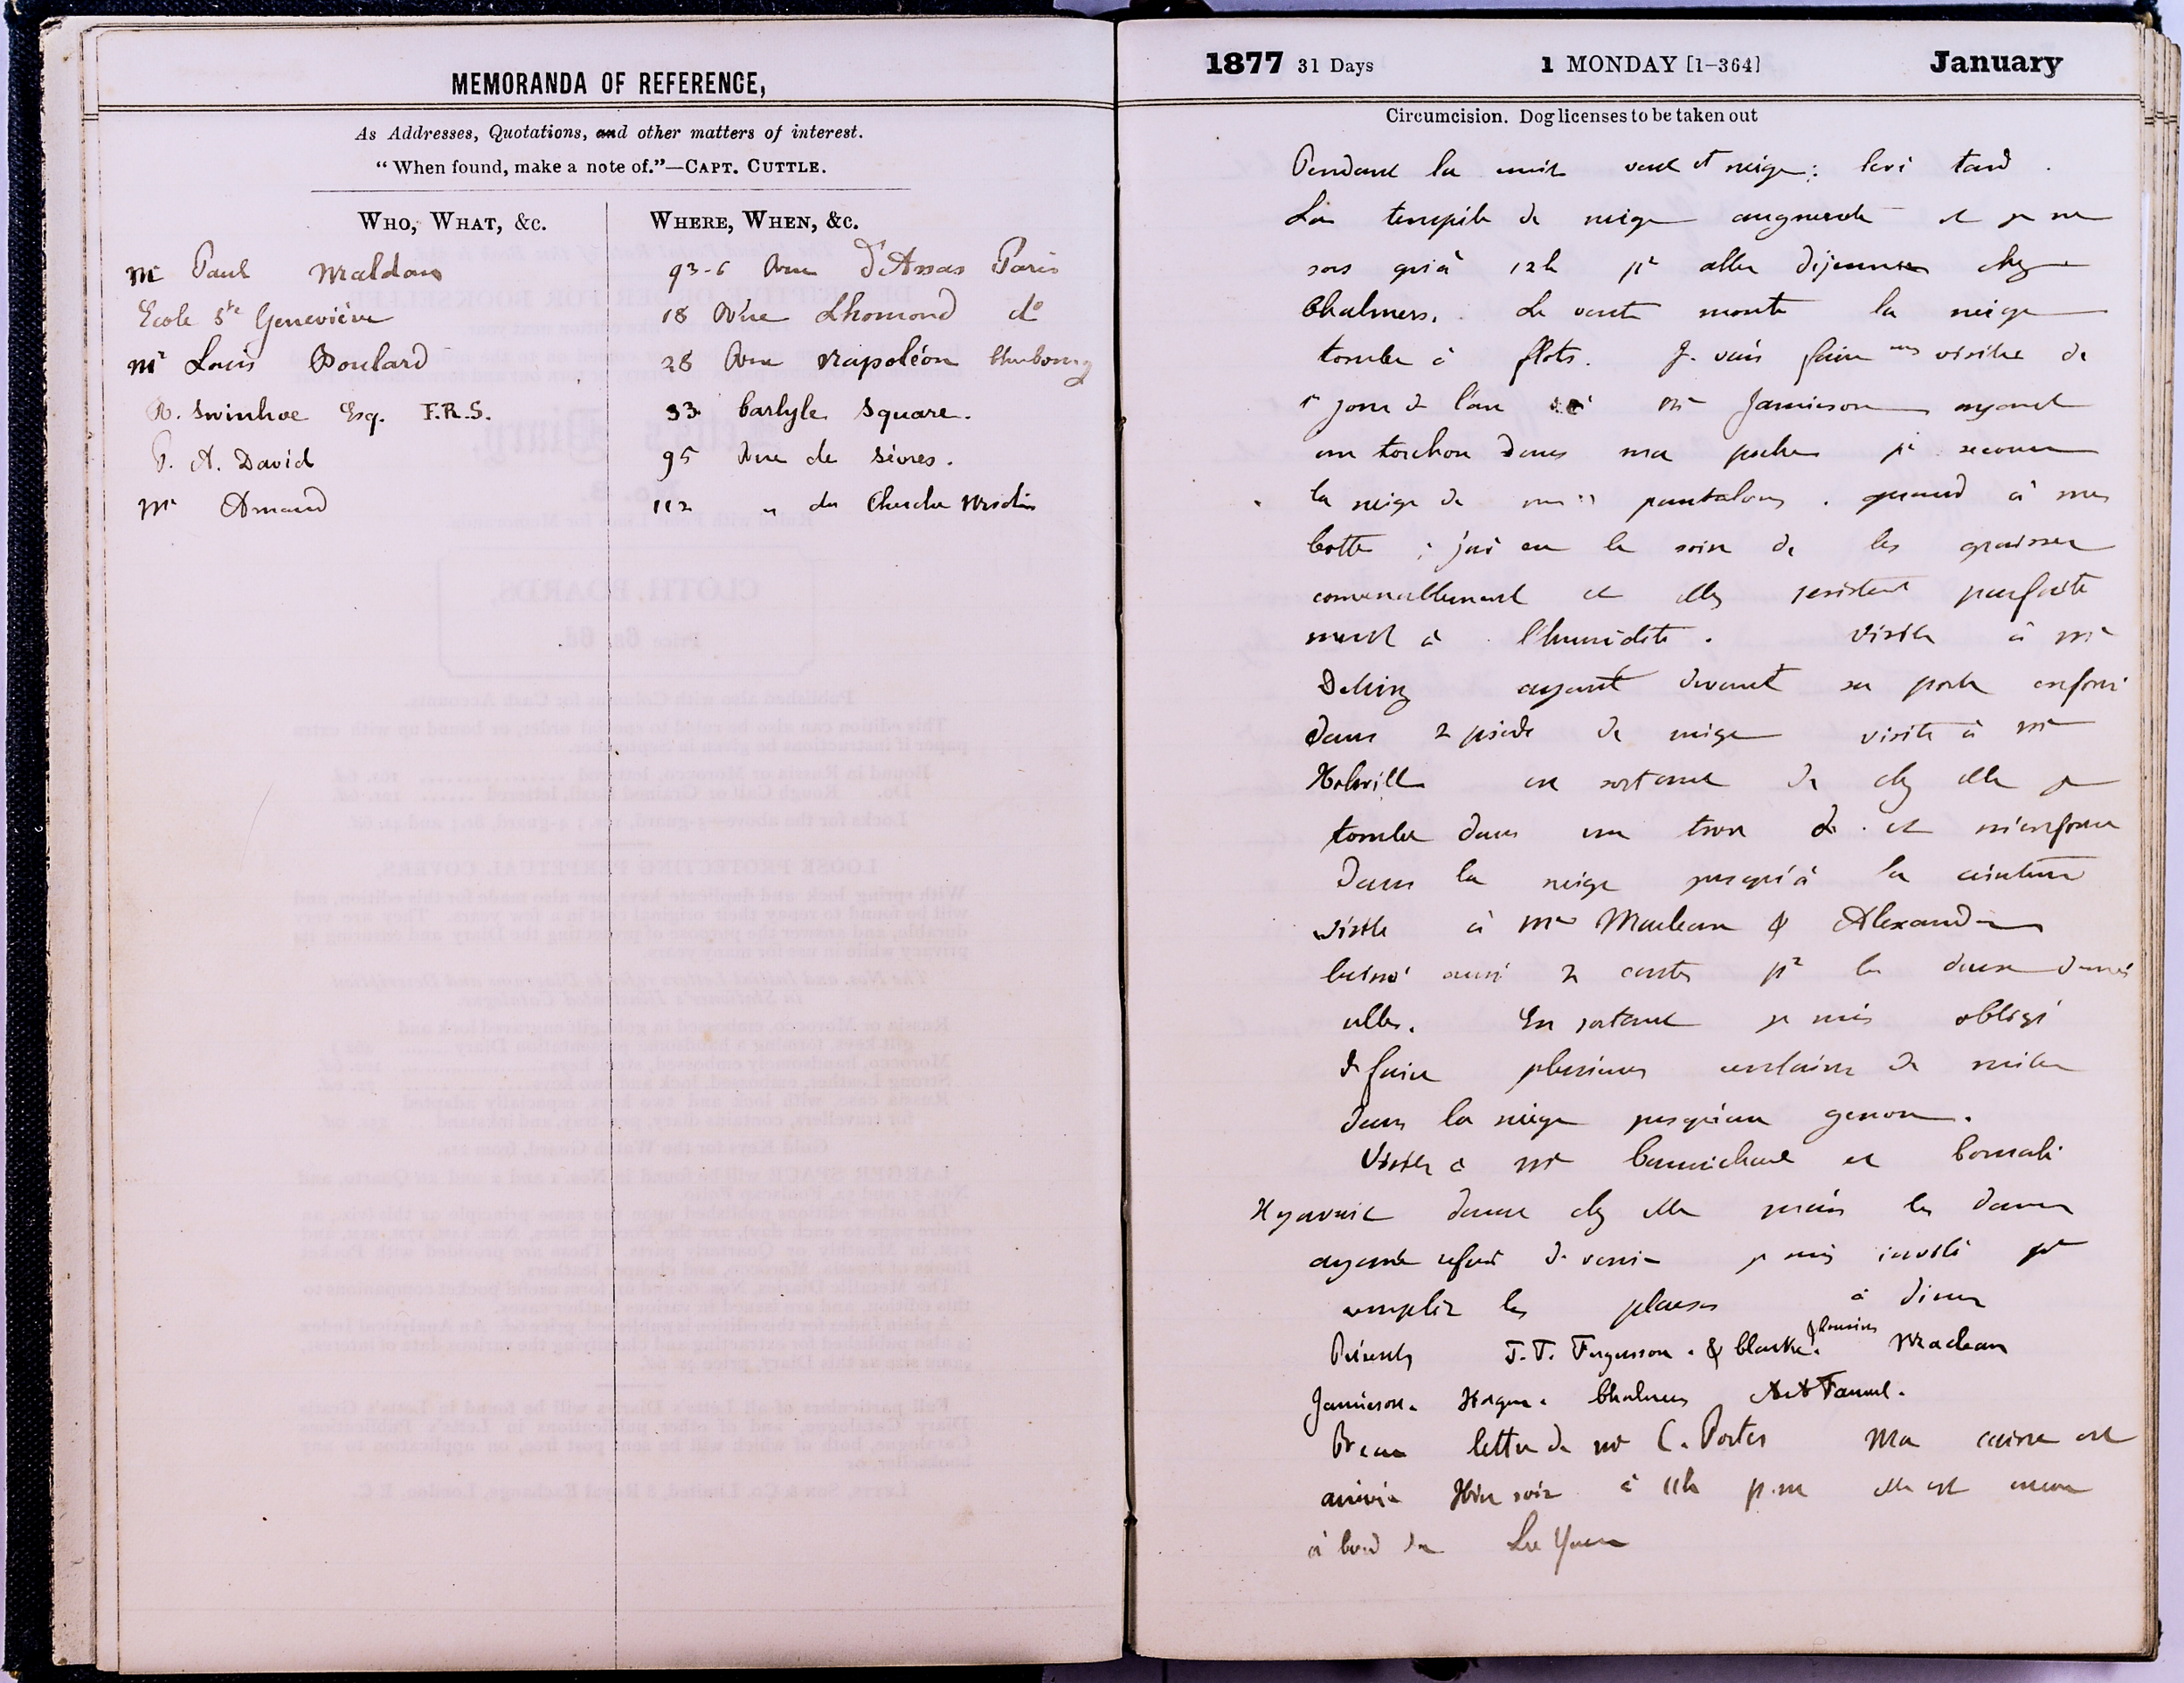 MEMORANDA OF REFERENCE,
As Addresses, Quotations, and other matters of interest.
"When found, make a note of."—CAPT. CUTTLE.
WHO, WHAT, &c.
WHERE, WHEN, &c.
Mr Paul Maldan
93-6 Rue d'Assas Paris
Ecole Ste Geneviève
18 Rue Lhomond do
Mr Louis Poulard
28 Rue Napoléon Cherbourg
R. Swinhoe Esq. F.R.S.
33 Carlyle Square.
P. A. David
95 Rue de Sèvres.
Mr Amand
112 " du Cherche Midi
1877 31 Days 1 MONDAY [1-364] January
Circumcision. Dog licenses to be taken out
Pendant la nuit vent et neige: levé tard.
La tempête de neige augmente et je ne
sors qu'à 12h pr aller déjeuner chez
Chalmers. Le vent monte la neige
tombe à flots. Je vais faire mes visites de
1r jour de l'an Mr Jamieson ayant
un torchon dans ma poche je secoue
la neige de mes pantalons. quand à mes
botte; j'ai eu le soin de les graisser
convenablement et elles resistent parfaite
ment à l'humidité. Visite à Mr
Detring ayant devant sa porte enfoncé
dans 2 pieds de neige visite à Mr
Holwill en sortant de chez elle je
tombe dans un trou et m'enfonce
Dans la neige jusqu'à la ceinture
visite à Mr Maclean & Alexander
laissé aussi 2 cartes pr les deux demoi
elles. En sortant je suis obligé
de faire plusieurs centaines de mètres
dans la neige jusqu'au genou.
Visite à Mr Carmichael et Cornabé
Il y avait danse chez elle mais les dames
ayant refusé de venir je suis invité pr
remplir les places à diner
Présents T.T. Fergusson. & Clarke. Maclean
Jamieson. Hagen. Chalmers A A Fauvel.
Reçu lettre de Mr C. Porter Ma caisse est
arrivée Hier soir à 11h p.m elle est encore
à bord du Lee Yuen